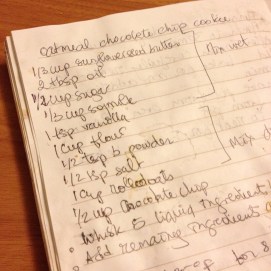 oatmeal chocolate chip cookie
1/3 cup sunflowerseed butter
2 tbsp oil
1/2 cup sugar
1/3 cup soymilk
1 tsp vanilla
Mix wet
1 cup flour
1/2 tsp b powder
1/2 tsp salt
1 cup rolled oats
1/2 cup chocolate chip
Mix
• Whisk 5 liquid ingredients
• Add remaining ingredients
for 8